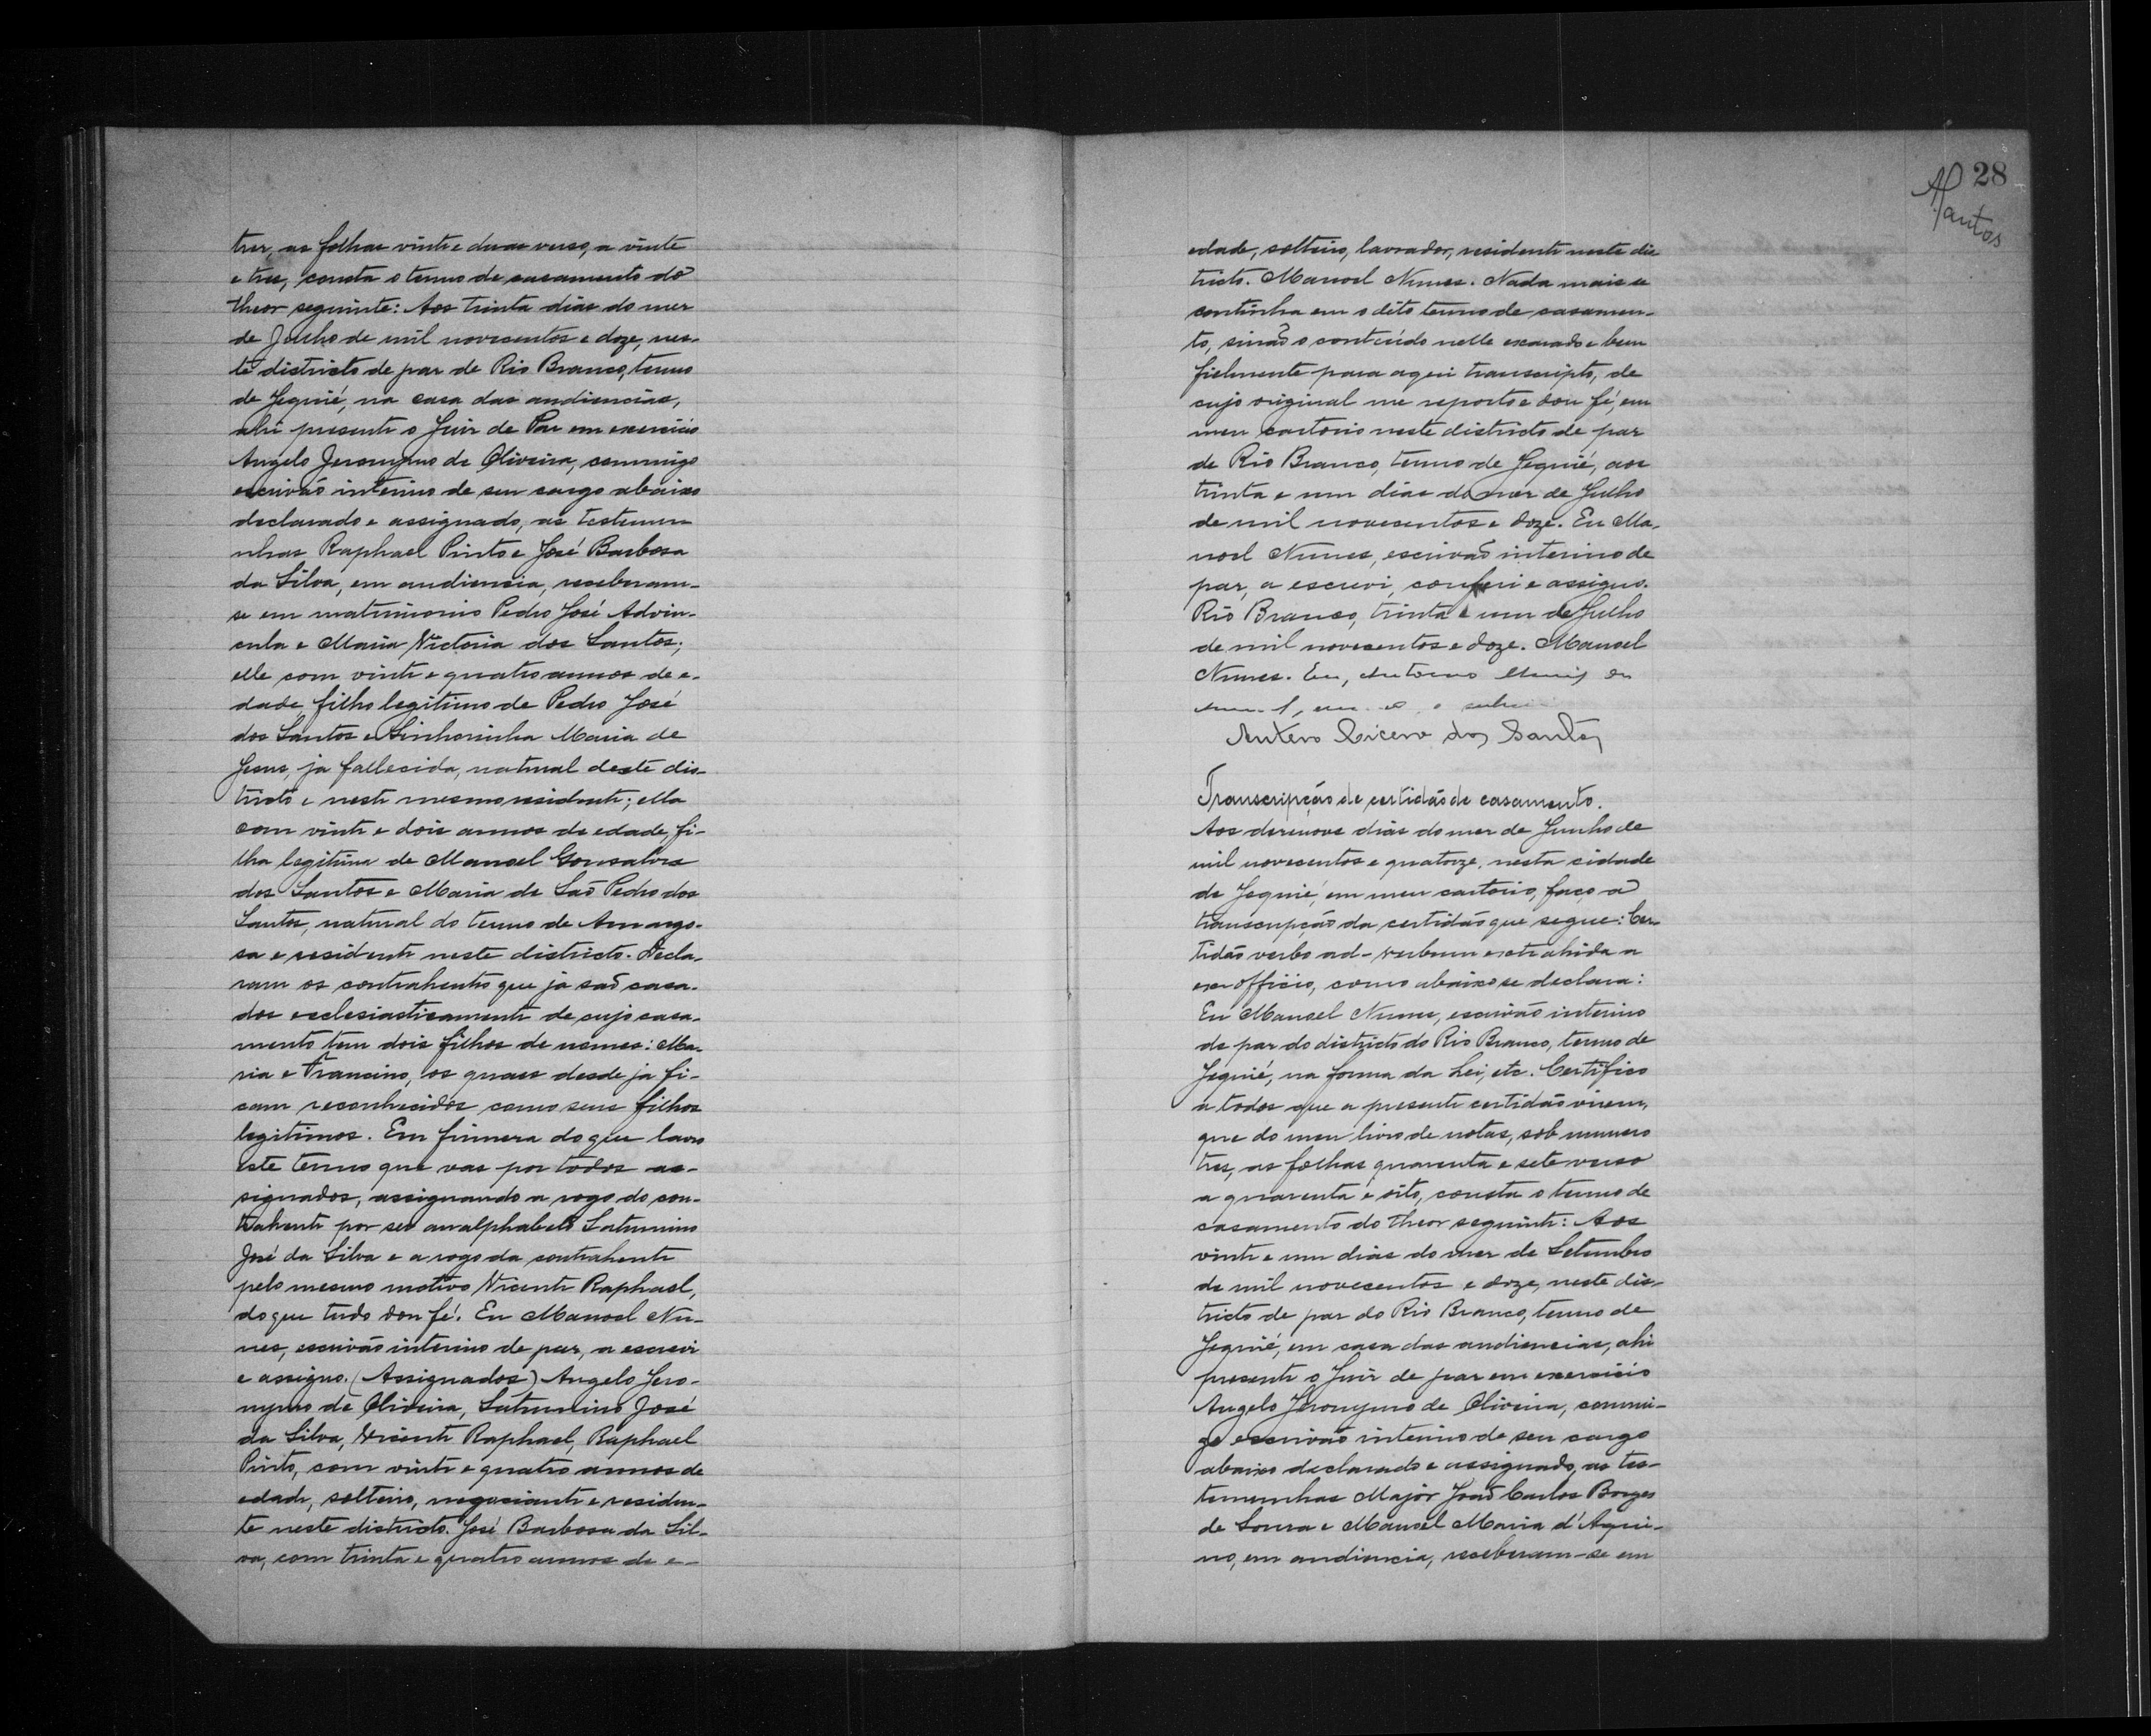 tres, as folhas vinte e duas verso, a vinte
e tres, consta o termo de casamento do
theor seguinte: Aos trinta dias do mez
de Julho de mil novecentos e doze, nes-
te districto de paz de Rio Branco, termo
de Jequié, na casa das audiencias,
ahi presente o Juiz de Paz em exercicio
Angelo Jeronymo de Oliveira, commigo
escrivão interino de seu cargo abaixo
declarado e assignado, as testemu
nhas Raphael Pinto e José Barbosa
da Silva, em audiencia, receberam-
se em matrimonio Pedro José Advin-
cula e Maria Victoria dos Santos;
elle com vinte e quatro annos de e-
dade, filho legitimo de Pedro José
dos Santos e Sinhorinha Maria de
Jesus, ja fallecida, natural deste dis-
tricto e neste mesmo residente; ella
com vinte e dois annos de edade, fi-
lha legitima de Manoel Gonsalves
dos Santos e Maria de São Pedro dos
Santos, natural do termo de Amargo-
sa e residente neste districto. Decla-
ram os contrahentes que ja são casa-
dos ecclesiasticamente de cujo casa-
mento tem dois filhos de nomes: Ma-
ria e Francino, os quaes desde ja fi-
cam reconhecidos como seus filhos
legitimos. Em firmeza do que lavro
este termo que vae por todos as-
signados, assignando a rogo do con-
trahente por ser analphabeto Saturnino
José da Silva e a rogo da contrahente
pelo mesmo motivo Vicente Raphael,
do que tudo dou fé. Eu Manoel Nu-
nes, escrivão interino de paz, a escrevi
e assigno. (Assignados) Angelo Jero-
nymo de Oliveira, Saturnino José
da Silva, Vicente Raphael, Raphael
Pinto, com vinte e quatro annos de
edade, solteiro, negociante e residen-
te neste districto. José Barbosa da Sil-
va, com trinta e quatro annos de e-
28
Santos
edade, solteiro, lavrador, residente neste dis
tricto. Manoel Nunes. Nada mais se
continha em o dito termo de casamen-
to, sinão o conteúdo nelle exarado e bem
fielmente para aqui transcripto, de
cujo original me reporto e dou fé, em
meu cartorio neste districto de paz
de Rio Branco, termo de Jequié, aos
trinta e um dias do mez de Julho
de mil novecentos e doze. Eu Ma-
noel Nunes, escrivão interino de
paz, a escrevi, conferi e assigno.
Rio Branco, trinta e um de Julho
de mil novecentos e doze. Manoel
Nunes. Eu,
Antero Cicero dos Santos
Transcripção de certidão de casamento.
Aos dezenove dias do mez de Junho de
mil novecentos e quatorze, nesta cidade
de Jequié, em meu cartorio, faço a
transcripção da certidão que segue: Cer-
tidão verbo ad-verbum extrahida a
ex-officio, como abaixo se declara:
Eu Manoel Nunes, escrivão interino
de paz do districto do Rio Branco, termo de
Jequié, na forma da Lei, etc. Certifico
a todos que a presente certidão virem,
que do meu livro de notas, sob numero
tres, as folhas quarenta e sete verso
a quarenta e oito, consta o termo de
casamento do theor seguinte: Aos
vinte e um dias do mez de Setembro
de mil novecentos e doze, neste dis-
tricto de paz do Rio Branco, termo de
Jequié, em casa das audiencias, ahi
presente o Juiz de paz em exercicio
Angelo Jeronymo de Oliveira, commi-
go escrivão interino de seu cargo
abaixo declarado e assignado, as tes-
temunhas Major João Carlos Borges
de Souza e Manoel Maria d'Aqui-
no, em audiencia, receberam-se em